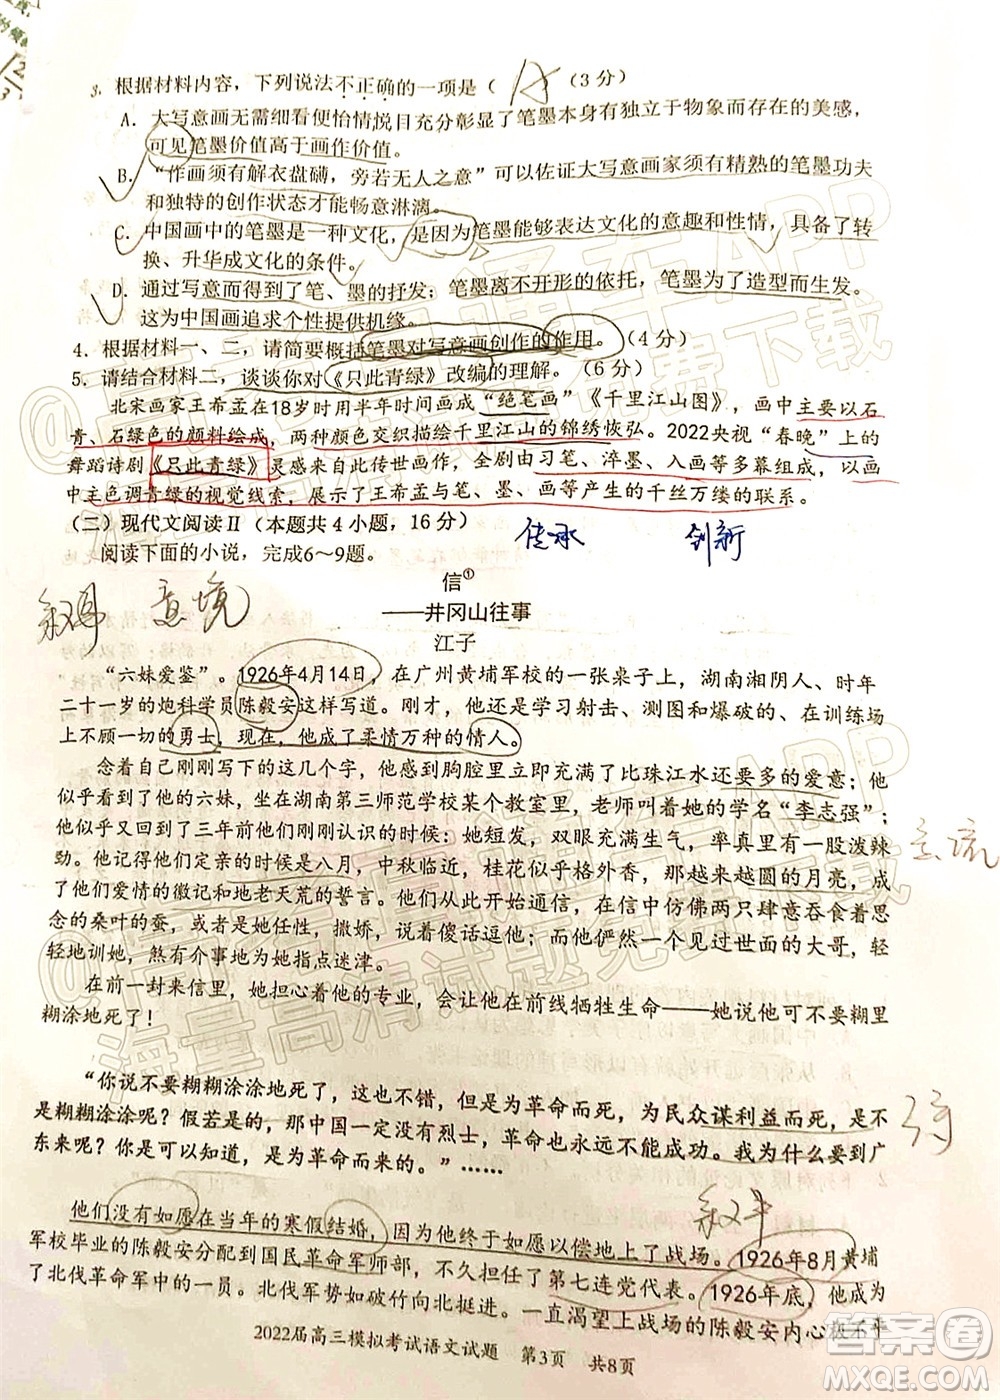 3. 根据材料内容，下列说法不正确的一项是（ A （3分）
A．大写意画无需细看便怡情悦目充分彰显了笔墨本身有独立于物象而存在的美感，
可见笔墨价值高于画作价值。
B．“作画须有解衣盘礴，旁若无人之意”可以佐证大写意画家须有精熟的笔墨功夫
和独特的创作状态才能畅意淋漓。
C．中国画中的笔墨是一种文化，是因为笔墨能够表达文化的意趣和性情，具备了转
换、升华成文化的条件。
D．通过写意而得到了笔、墨的抒发；笔墨离不开形的依托，笔墨为了造型而生发。
这为中国画追求个性提供机缘。
4. 根据材料一、二，请简要概括笔墨对写意画创作的作用。（4分）
5. 请结合材料二，谈谈你对《只此青绿》改编的理解。（6分）
北宋画家王希孟在18岁时用半年时间画成“绝笔画”《千里江山图》，画中主要以石
青、石绿色的颜料绘成，两种颜色交织描绘千里江山的锦绣恢弘。2022央视“春晚”上的
舞蹈诗剧《只此青绿》灵感来自此传世画作，全剧由习笔、淬墨、入画等多幕组成，以画
中主色调青绿的视觉线索，展示了王希孟与笔、墨、画等产生的千丝万缕的联系。
（二）现代文阅读Ⅱ（本题共4小题，16分）
传承 创新
阅读下面的小说，完成6～9题。
信①
意境
——井冈山往事
江子
“六妹爱鉴”。1926年4月14日，在广州黄埔军校的一张桌子上，湖南湘阴人、时年
二十一岁的炮科学员陈毅安这样写道。刚才，他还是学习射击、测图和爆破的、在训练场
上不顾一切的勇士，现在，他成了柔情万种的情人。
念着自己刚刚写下的这几个字，他感到胸腔里立即充满了比珠江水还要多的爱意；他
似乎看到他的六妹，坐在湖南第三师范学校某个教室里，老师叫着她的学名“李志强”；
他似乎看到了三年前他们刚刚认识的时候：她短发，双眼充满生气，率真里有一股泼辣
劲。他想起了他们定亲的时候是八月，中秋临近，桂花似乎格外香，越来越圆的月亮，成
了他们爱情的徽记和地老天荒的誓言。他们从此开始通信，在信中仿佛两只肆意吞食着思
念的桑叶的蚕，或者是她任性，撒娇，说着傻傻的话语，而他俨然一个见过世面的大哥，轻
轻地训她，煞有介事地为她指点迷津。
在前一封来信里，她担心着他的专业，会让他在前线牺牲生命——她说他可不要糊里
糊涂地死了！
“你说不要糊糊涂涂地死了，这也不错，但是为革命而死，为民众谋利益而死，是不
是糊糊涂涂呢？假若是的，那中国一定没有烈士，革命也永远不能成功。我为什么要到广
东来呢？你是可以知道，是为革命而来的。”……
叙事
他们没有如愿在当年的寒假结婚，因为他终于如愿以偿地上了战场。1926年8月黄埔
军校毕业的陈毅安分配到国民革命军师部，不久担任了第七连党代表。1926年底，他成为
了北伐革命军中的一员。北伐军势如破竹向北挺进。一直渴望上战场的陈毅安内心极不平
2022届高三模拟考试语文试题 第3页 共8页
答案卷